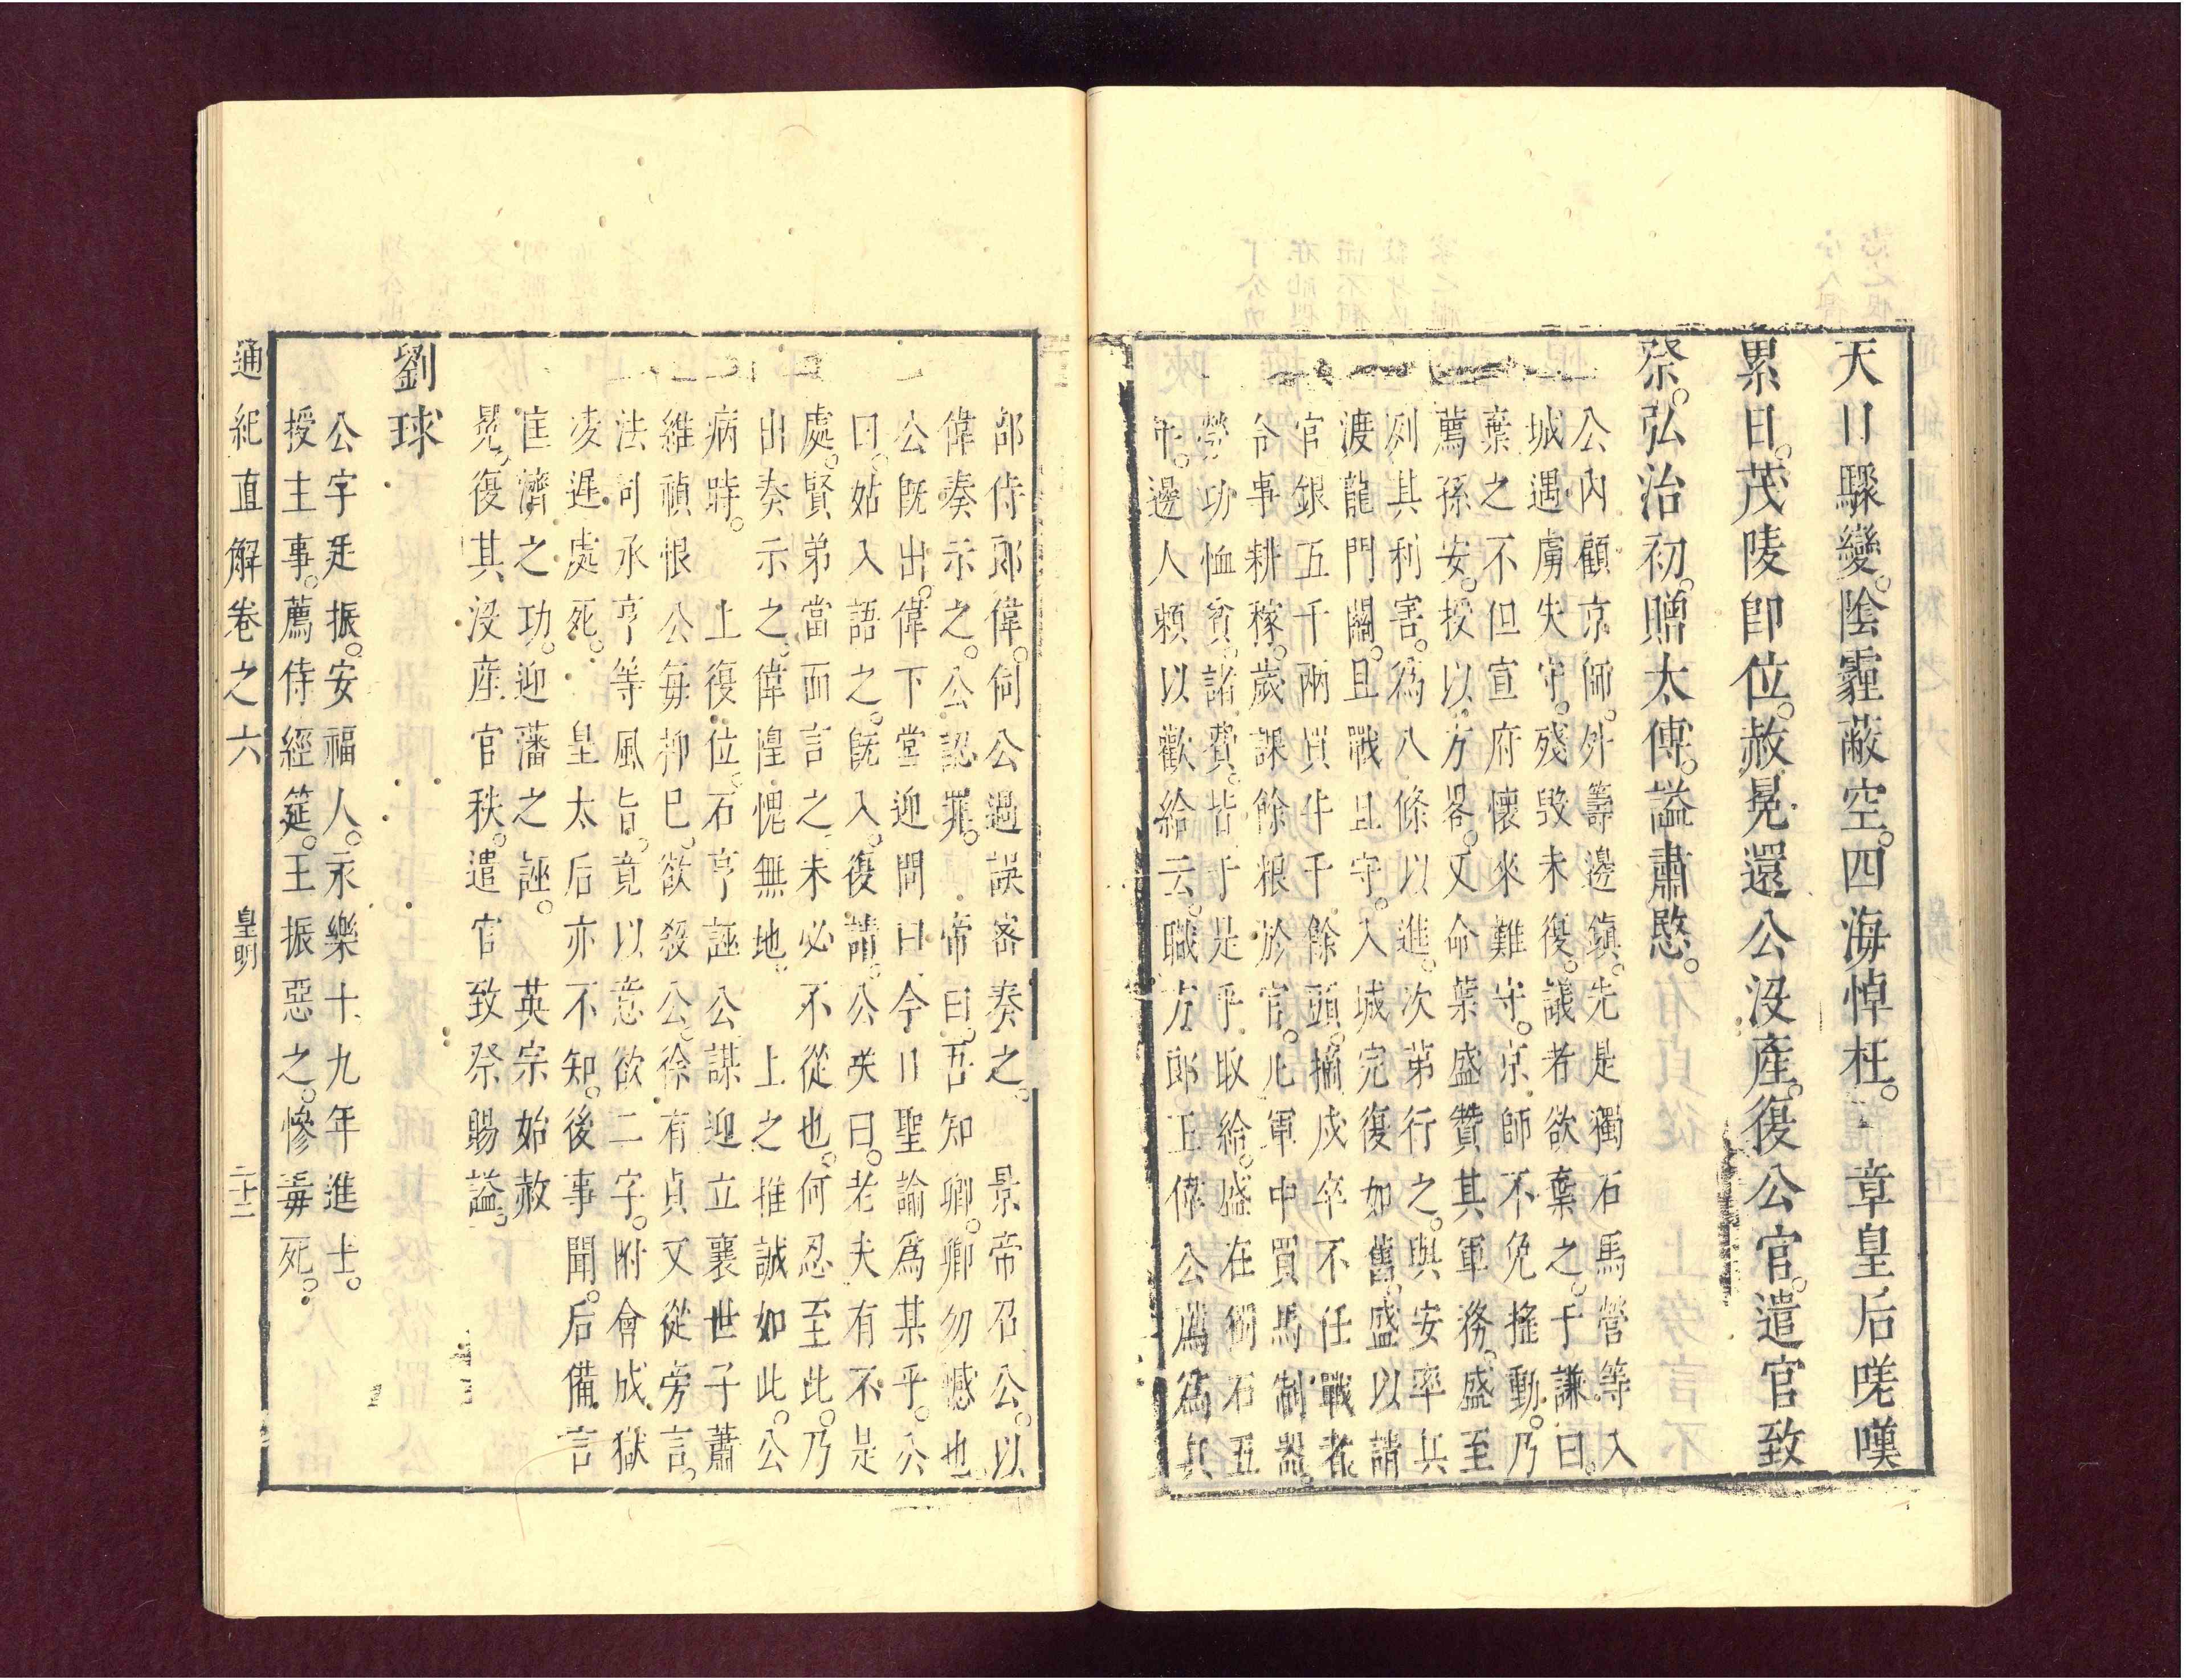 天日驟變。陰霾蔽空。四海悼枉。 章皇后嗟嘆
累日。茂陵卽位。赦晃還公沒產。復公官。遣官致
祭。弘治初。贈太傅。謚肅愍。
公內顧京師。外籌邊鎮。先是獨石馬營等入
城遇虜失守。殘毀未復。議者欲棄之。于謙曰。
棄之不但宣府懷來難守。京師不免搖動。乃
薦孫安。授以方畧。又命葉盛贊其軍務。盛至
列其利害。爲八條以進。次第行之。與安率兵
渡龍門關。且戰且守。入城完復如舊。盛以請
官銀五千兩買牛千餘頭。摘戍卒不任戰者。
令事耕稼。歲課餘粮於官。凡軍中買馬制器。
勞功恤貧。諸費。皆于是乎取給。盛在獨石五
年。邊人賴以歡給云。職方郎王偉公薦爲兵
部侍郎偉。伺公過誤密奏之。 景帝召公。以
偉奏示之。公認罪。 帝曰。吾知卿。卿勿憾也。
公旣出。偉下堂迎問曰今日聖諭爲某乎。公
曰。姑入語之。旣入。復請。公笑曰。老夫有不是
處。賢弟當面言之。未必不從也。何忍至此。乃
出奏示之。偉惶愧無地。 上之推誠如此。公
病時。 上復位。石亨誣公謀迎立襄世子蕭
維禎恨公每抑已。欲殺公。徐有貞又從旁言。
法司承亨等風旨。竟以意欲二字。附會成獄
凌遲處死。 皇太后亦不知。後事聞。后備言
匡濟之功。迎藩之誣。 英宗始赦
晃。復其沒産官秩。遣官致祭賜謚。
劉球
公字廷振。安福人。永樂十九年進士。
授主事。薦侍經筵。王振惡之。慘毒死。
通紀直解卷之六 皇明 二十二